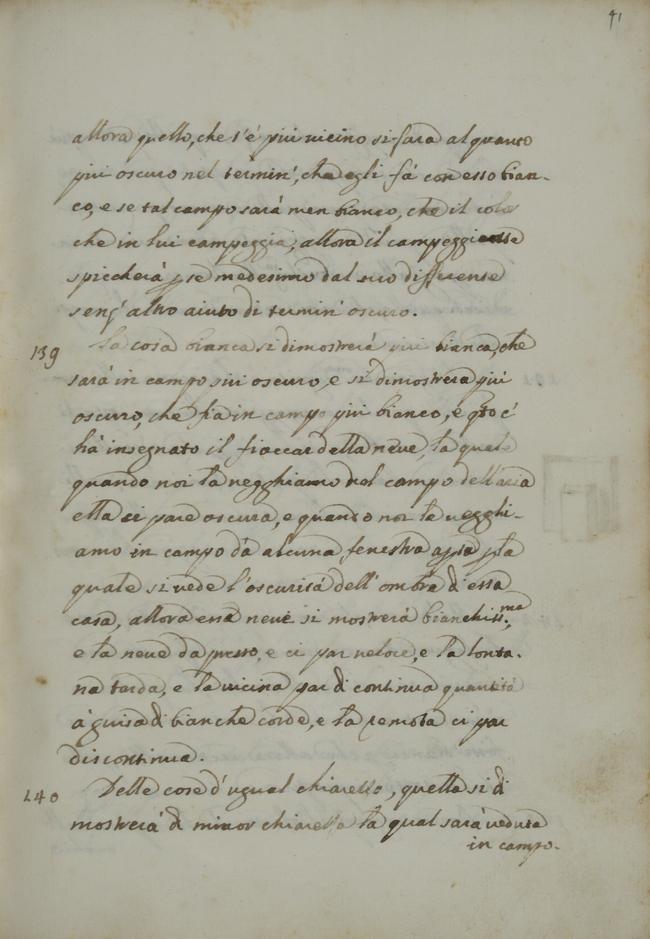 41
allora quello, che s'è più vicino si farà alquanto
più oscuro nel termin', che egli fà con esso bian-
co, e se tal campo sarà men bianco, che il color
che in lui campeggia, allora il campeggiante
spiccherà p se medesimo dal suo
senz' altro aiuto di termin' oscuro.
139 La cosa bianca si dimostrerà più bianca, che
sarà in campo più oscuro, e si dimostrerà più
oscuro, che fia in campo più bianco, e qto c'
hà insegnato il fioccar della neve, la quale
quando noi la vegghiamo nel campo dell'aria
ella ci pare oscura, e quando noi la vegghi-
amo in campo d'alcuna fenestra apta p la
quale si vede l'oscurità dell'ombra di essa
casa, allora essa neve si mostrerà bianchiss.ma
e la neve da presso, e ci par veloce, e la lonta-
na tarda, e la vicina par di continua quantità
à guisa di bianche corde, e la remota ci par
discontinua.
140 Delle cose d'ugual chiarezza, quella si di
mostrerà di minor chiarezza la qual sarà veduta
in campo-